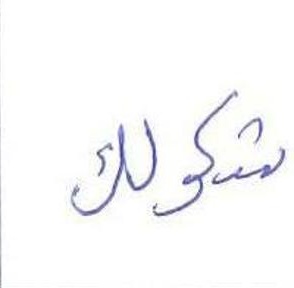 شكو لك